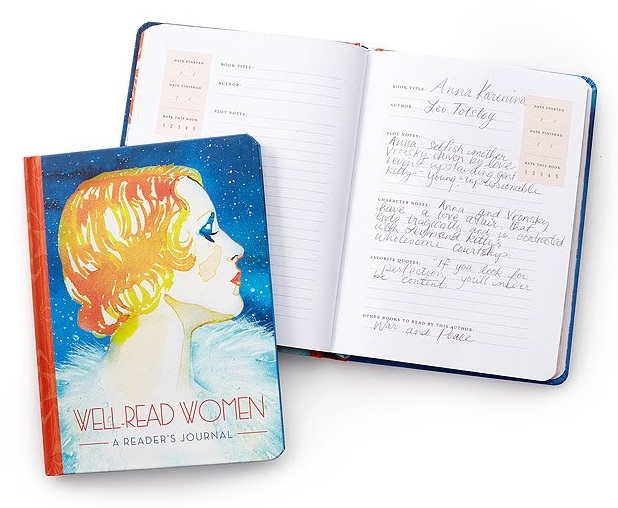 WELL-READ WOMEN
A READER'S JOURNAL
DATE STARTED
/ /
DATE FINISHED
/ /
RATE THIS BOOK
1 2 3 4 5
BOOK TITLE:
AUTHOR:
PLOT NOTES:
BOOK TITLE: Anna Karenina
AUTHOR: Leo Tolstoy
DATE STARTED
/ /
DATE FINISHED
/ /
RATE THIS BOOK
1 2 3 4 5
PLOT NOTES:
Anna - selfish mother
Vronsky - driven by love
Levin - upstanding
Kitty - young - impressionable
CHARACTER NOTES: Anna and Vronsky
have a love affair that
ends tragically and is contrasted
with Levin and Kitty's
wholesome courtship.
FAVORITE QUOTES: "If you look for
perfection, you'll never
be content."
OTHER BOOKS TO READ BY THIS AUTHOR:
War and Peace